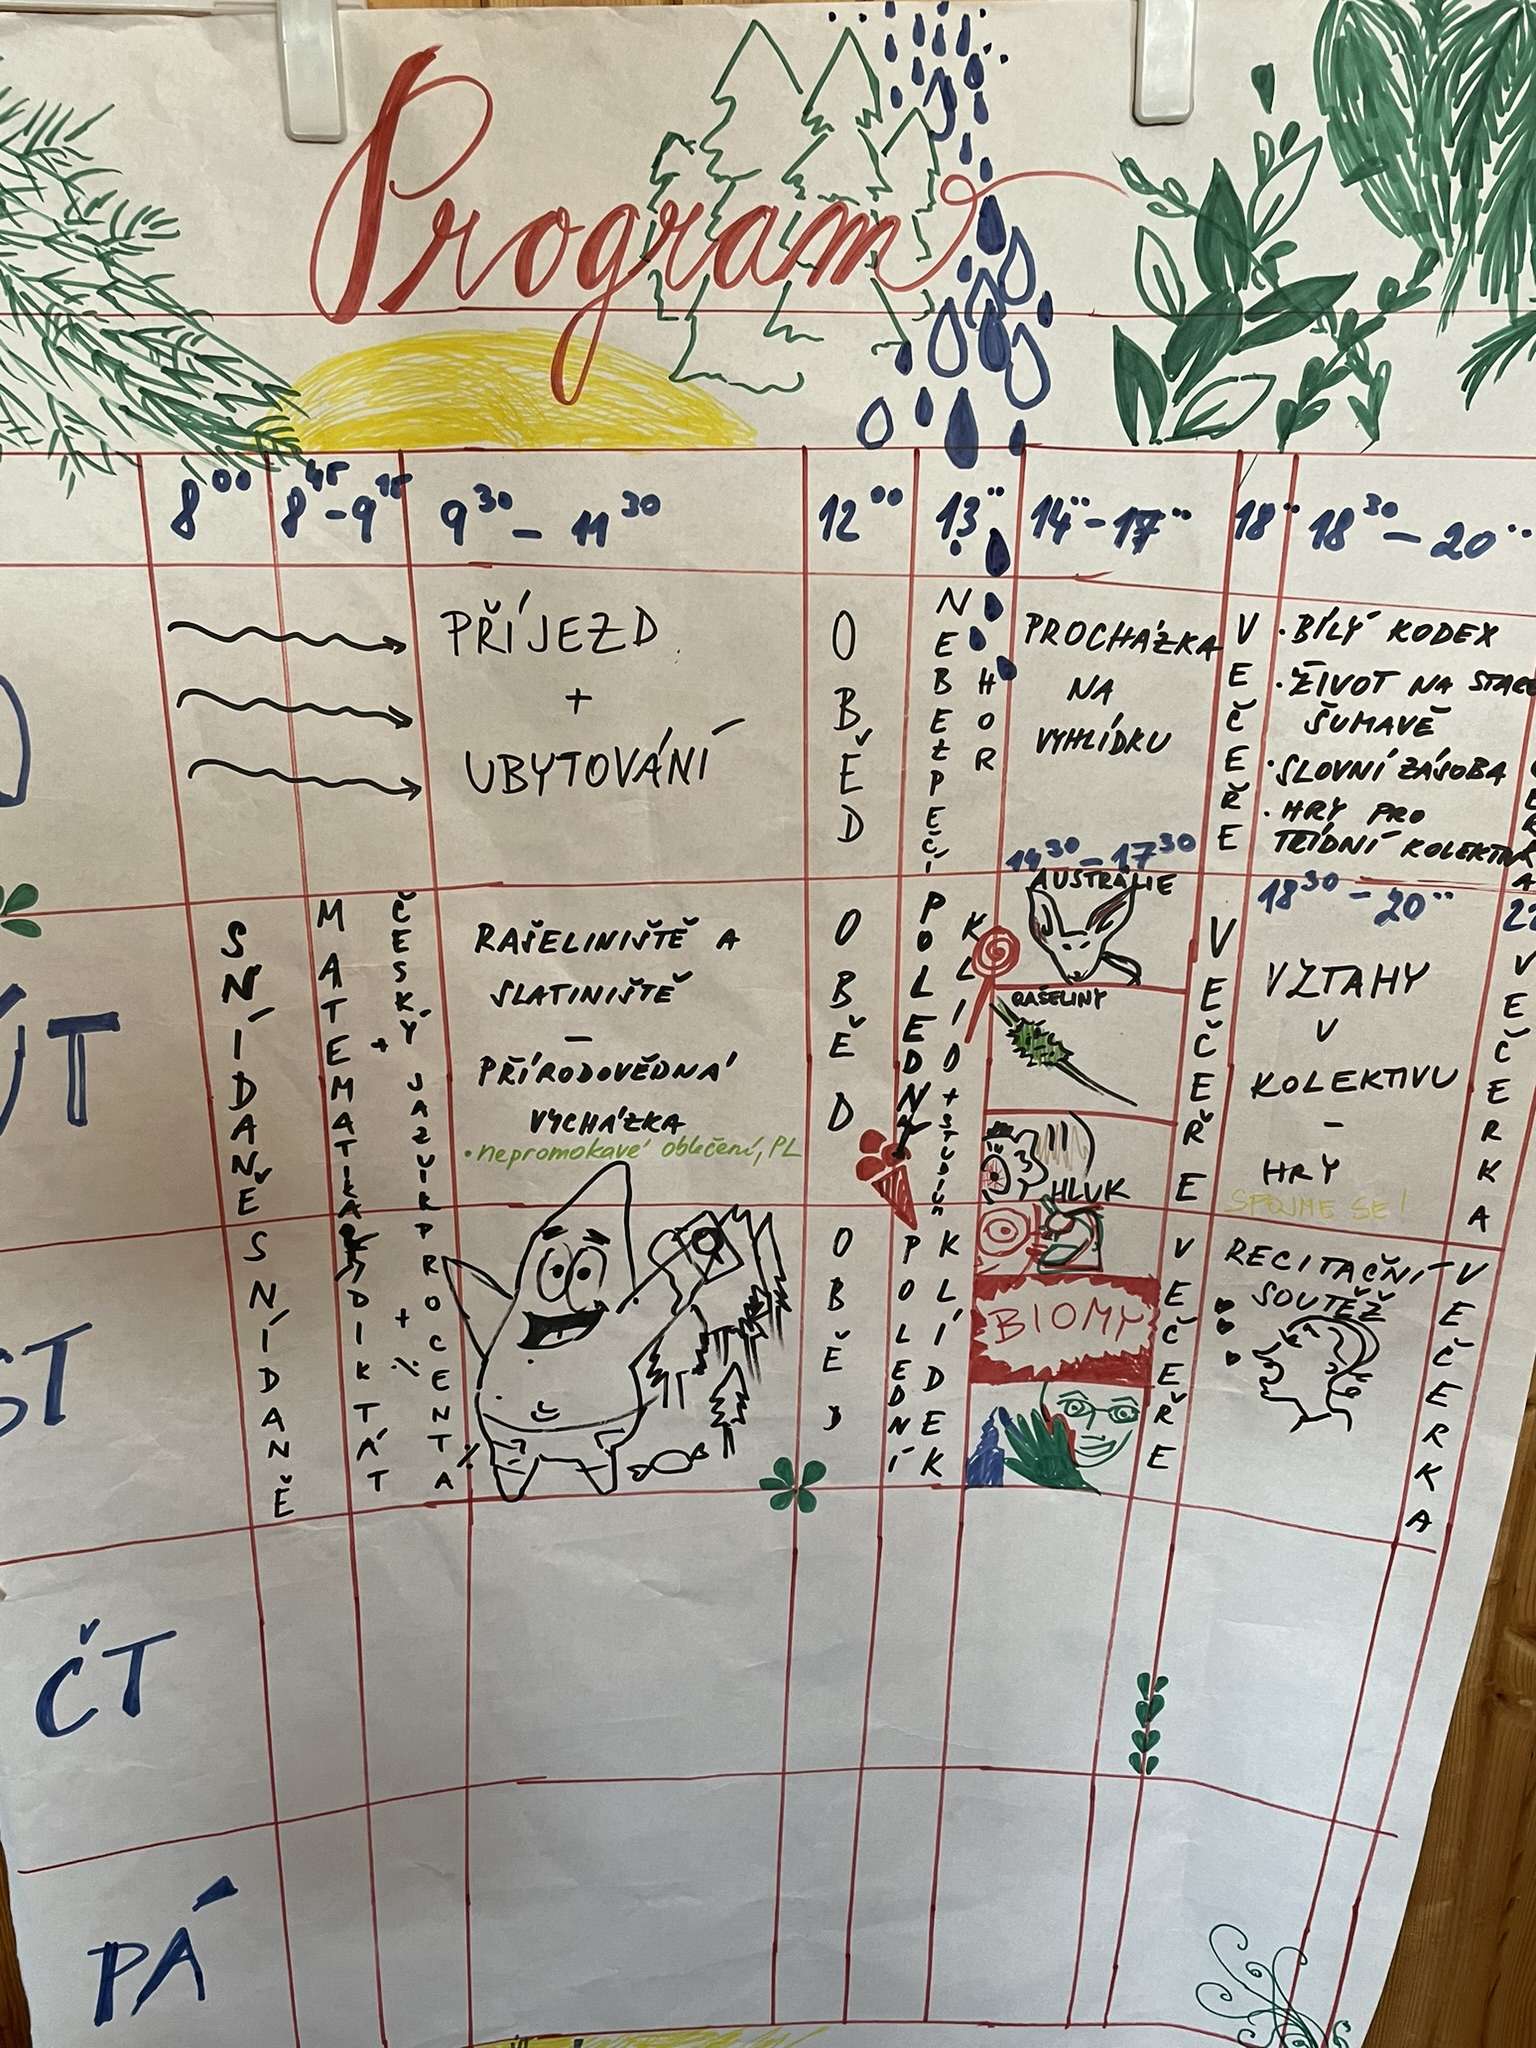 Program
8⁰⁰
8⁴⁵ - 9¹⁵
9³⁰ - 11³⁰
12⁰⁰
13⁰⁰
14⁰⁰ - 17⁰⁰
18⁰⁰
18³⁰ - 20⁰⁰
PŘÍJEZD
+
UBYTOVÁNÍ
OBĚD
NEBEZPEČÍ
HOR
PROCHÁZKA
NA
VYHLÍDKU
VEČEŘE
· BÍLÝ KODEX
· ŽIVOT NA STARÉ
ŠUMAVĚ
· SLOVNÍ ZÁSOBA
· HRY PRO
TŘÍDNÍ KOLEKTIV
ÚT
SNÍDANĚ
MATEMATIKA
+
ČESKÝ JAZYK
RAŠELINIŠTĚ A
SLATINIŠTĚ
–
PŘÍRODOVĚDNÁ
VYCHÁZKA
· nepromokavé oblečení, PL
OBĚD
POLEDNÍ
KLID + STUDIUM
14³⁰ - 17³⁰
AUSTRÁLIE
RAŠELINY
HLUK
VEČEŘE
18³⁰ - 20⁰⁰
VZTAHY
V
KOLEKTIVU
–
HRY
SPOJME SE!
VEČERKA
ST
SNÍDANĚ
DIKTÁT
+
PROCENTA
%
OBĚD
POLEDNÍ
KLÍDEK
BIOMY
VEČEŘE
RECITAČNÍ
SOUTĚŽ
VEČERKA
ČT
PÁ